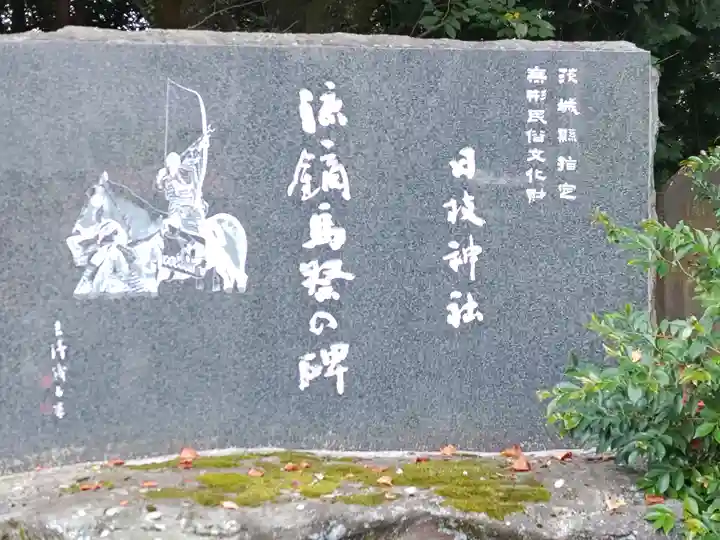 茨城縣指定
無形民俗文化財
日枝神社
流鏑馬祭の碑